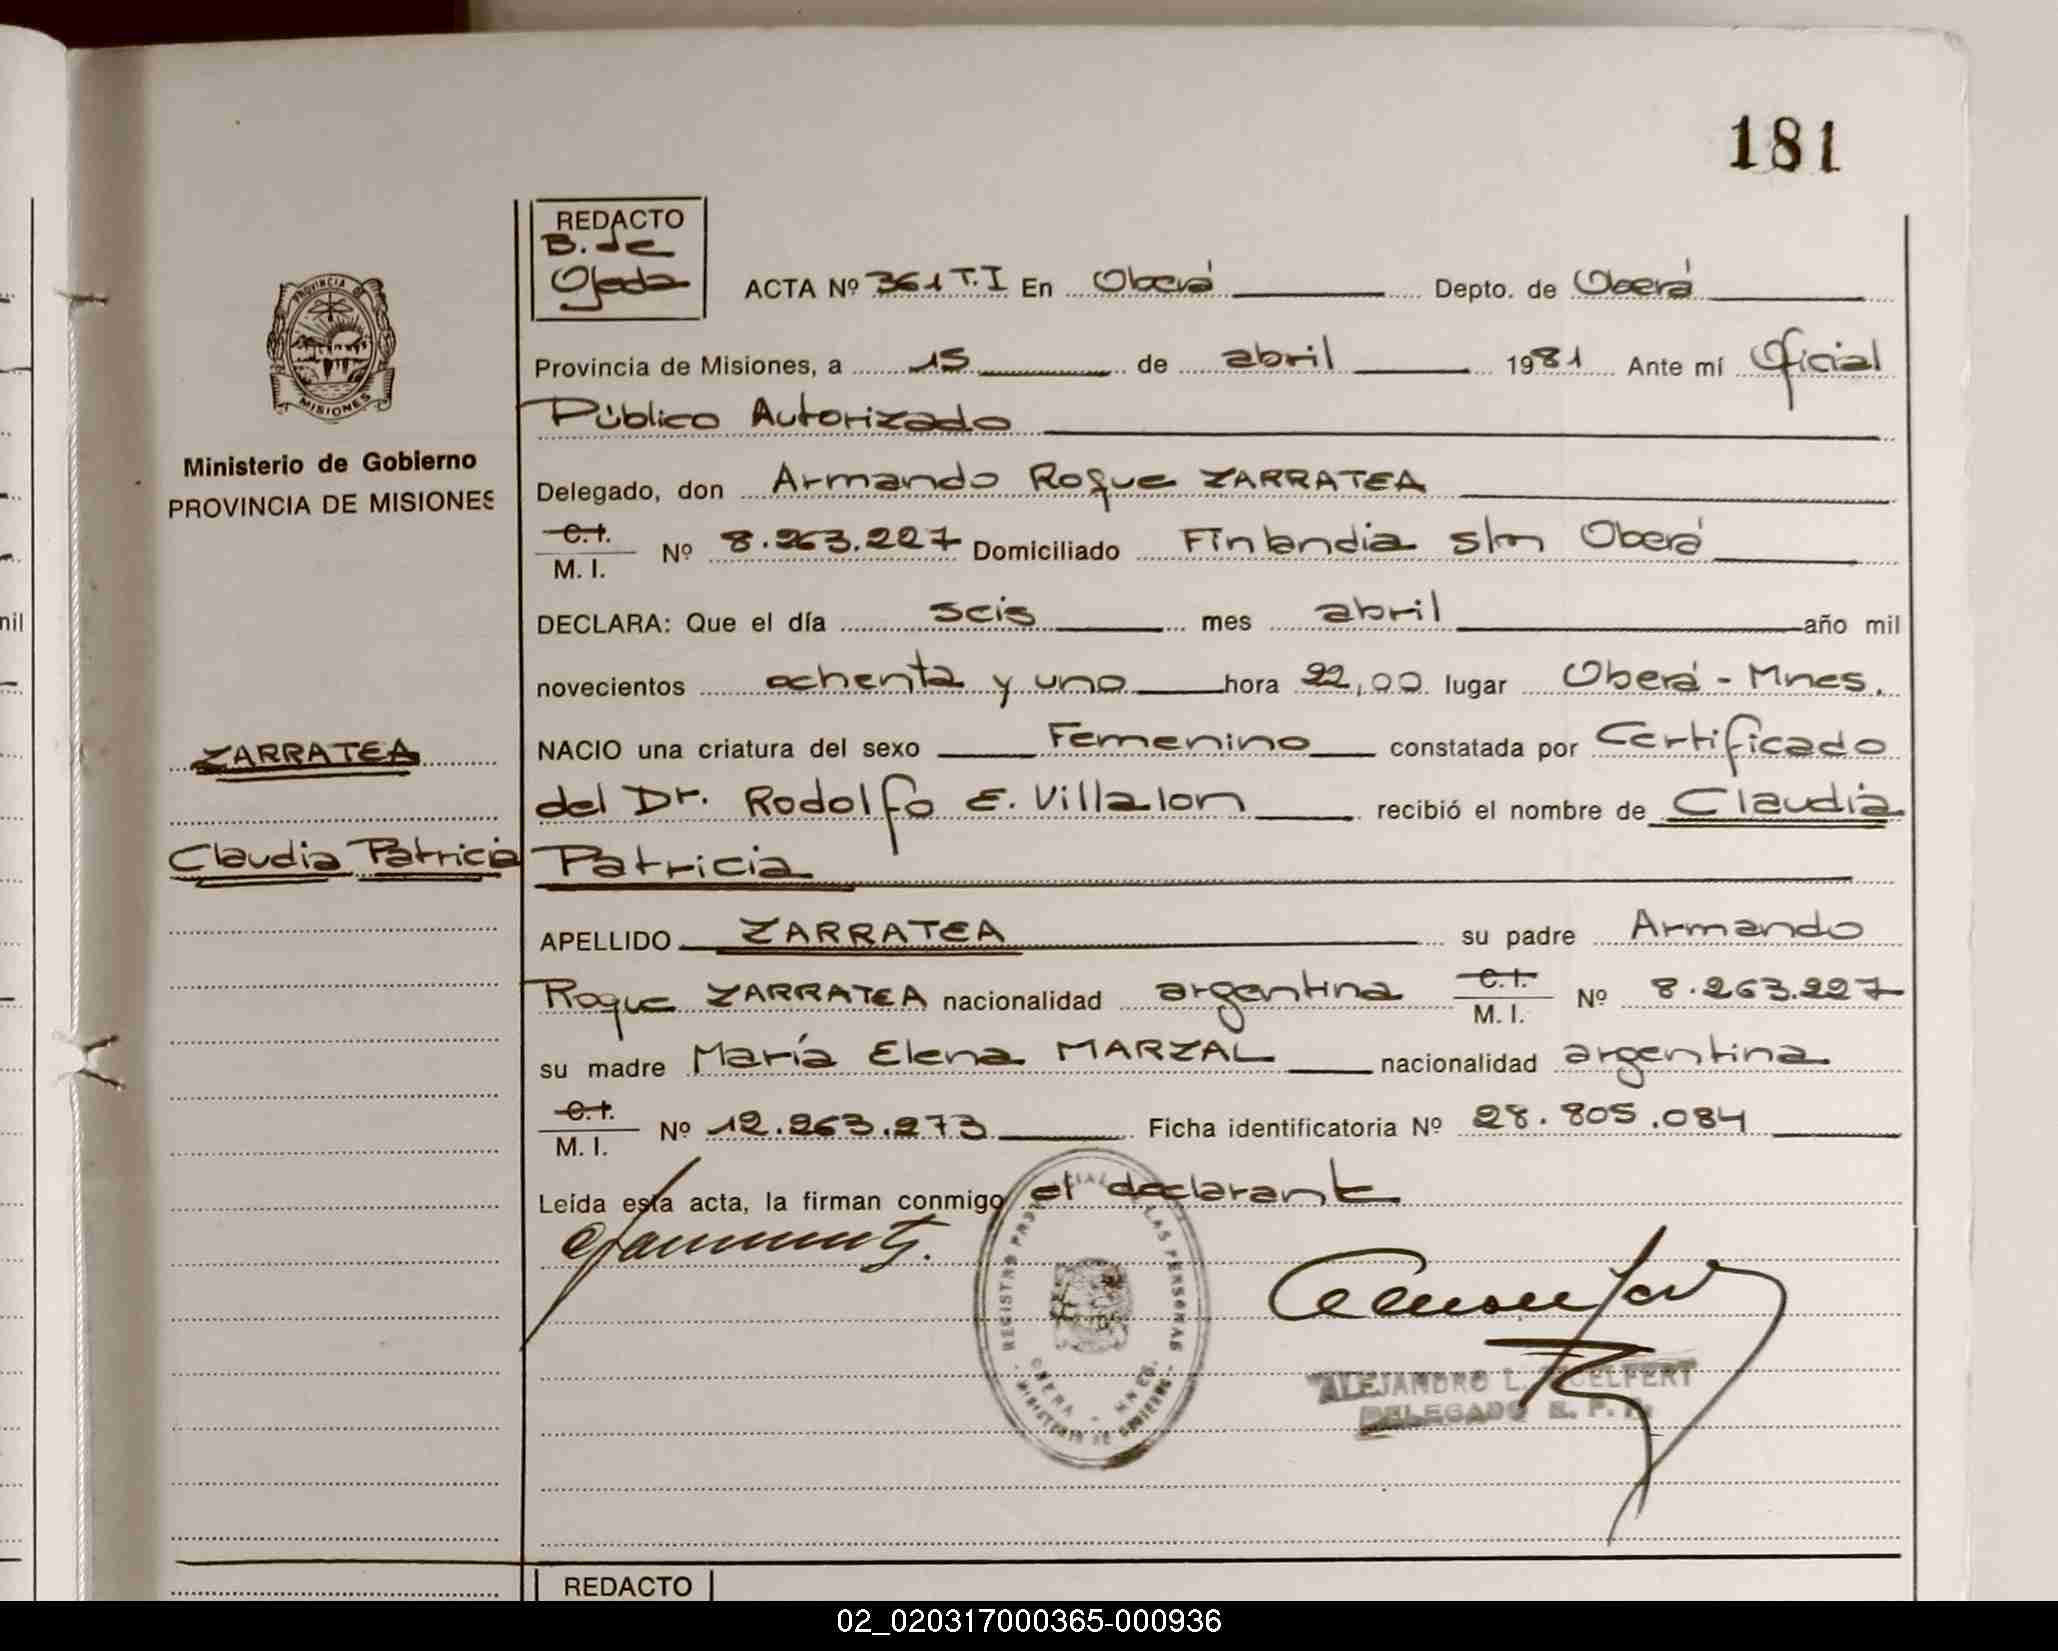 181
REDACTO
B. de
Ojeda
ACTA Nº 361 T.I En Oberá Depto. de Oberá
PROVINCIA DE
MISIONES
Provincia de Misiones, a 15 de abril 1981 Ante mí Oficial
Público Autorizado
Ministerio de Gobierno
PROVINCIA DE MISIONES
Delegado, don Armando Roque ZARRATEA
C.I.
M. I. Nº 8.263.227 Domiciliado Finlandia s/n Oberá
DECLARA: Que el día seis mes abril año mil
nil
novecientos ochenta y uno hora 22,00 lugar Oberá - Mnes.
ZARRATEA
NACIO una criatura del sexo Femenino constatada por Certificado
del Dr. Rodolfo E. Villalon recibió el nombre de Claudia
Claudia Patricia
Patricia
APELLIDO ZARRATEA su padre Armando
Roque ZARRATEA nacionalidad argentina C.I.
M. I. Nº 8.263.227
su madre María Elena MARZAL nacionalidad argentina
C.I.
M. I. Nº 12.263.273 Ficha identificatoria Nº 28.805.084
Leída esta acta, la firman conmigo el declarante
REGISTRO PROVINCIAL DE LAS PERSONAS
OBERA - MNES.
MINISTERIO DE GOBIERNO
ALEJANDRO L.
DELEGADO R. P. P.
REDACTO
02_020317000365-000936